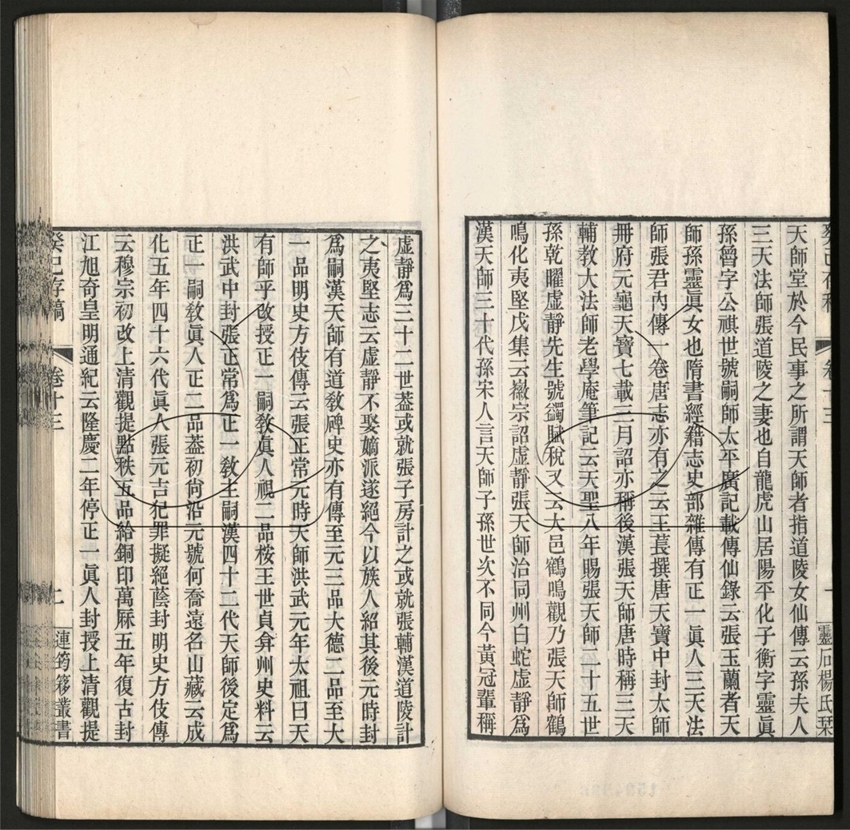 癸巳存稿
卷十三
靈石楊氏栞
天師堂於今民事之所謂天師者指道陵女仙傳云孫夫人
三天法師張道陵之妻也自龍虎山居陽平化子衡字靈眞
孫魯字公祺世號嗣師太平廣記載傳仙錄云張玉蘭者天
師孫靈眞女也隋書經籍志史部雜傳有正一眞人三天法
師張君內傳一卷唐志亦有之云王萇撰唐天寶中封太師
冊府元龜天寶七載三月詔亦稱後漢張天師唐時稱三天
輔教大法師老學庵筆記云天聖八年賜張天師二十五世
孫乾曜虛靜先生號蠲賦稅又云大邑鶴鳴觀乃張天師鶴
鳴化夷堅戊集云徽宗詔虛靜張天師治同州白蛇虛靜爲
漢天師三十代孫宋人言天師子孫世次不同今黃冠輩稱
虛靜爲三十二世蓋或就張子房計之或就張輔漢道陵計
之夷堅志云虛靜不娶嫡派遂絕今以族人紹其後元時封
爲嗣漢天師有道敎碑史亦有傳至元三品大德二品至大
一品明史方伎傳云張正常元時天師洪武元年太祖曰天
有師乎改授正一嗣敎眞人視二品桉王世貞弇州史料云
洪武中封張正常爲正一敎主嗣漢四十二代天師後定爲
正一嗣敎眞人正二品蓋初尙沿元號何喬遠名山藏云成
化五年四十六代眞人張元吉犯罪擬絕蔭封明史方伎傳
云穆宗初改上清觀提點秩五品給銅印萬厤五年復古封
江旭奇皇明通紀云隆慶二年停正一眞人封授上清觀提
癸巳存稿
卷十三
二
連筠簃叢書